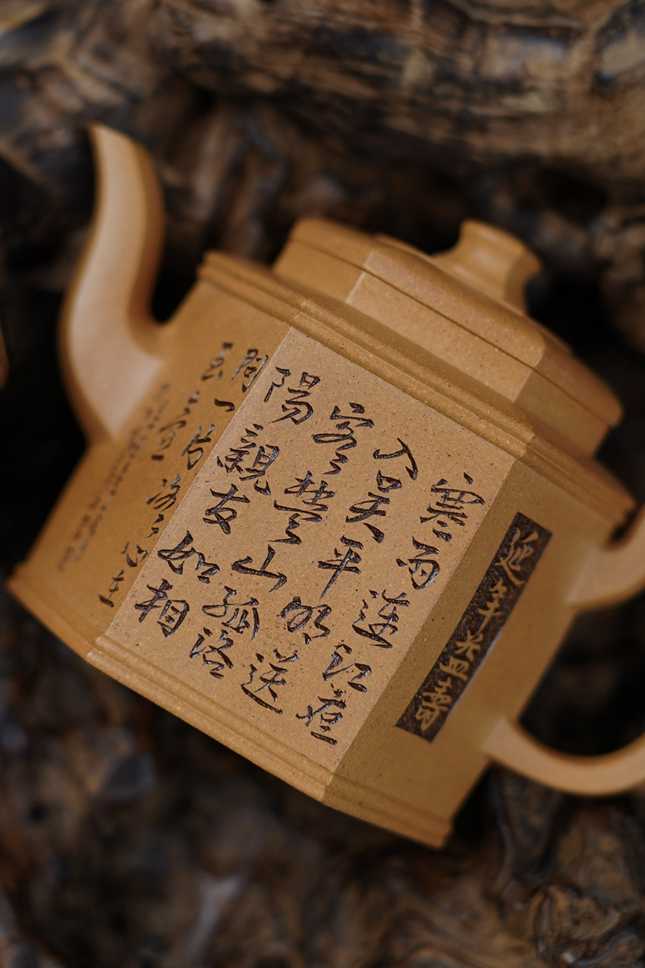 延年益壽
寒雨連江夜
入吳平明送
客楚山孤洛
陽親友如相
問一片冰心在